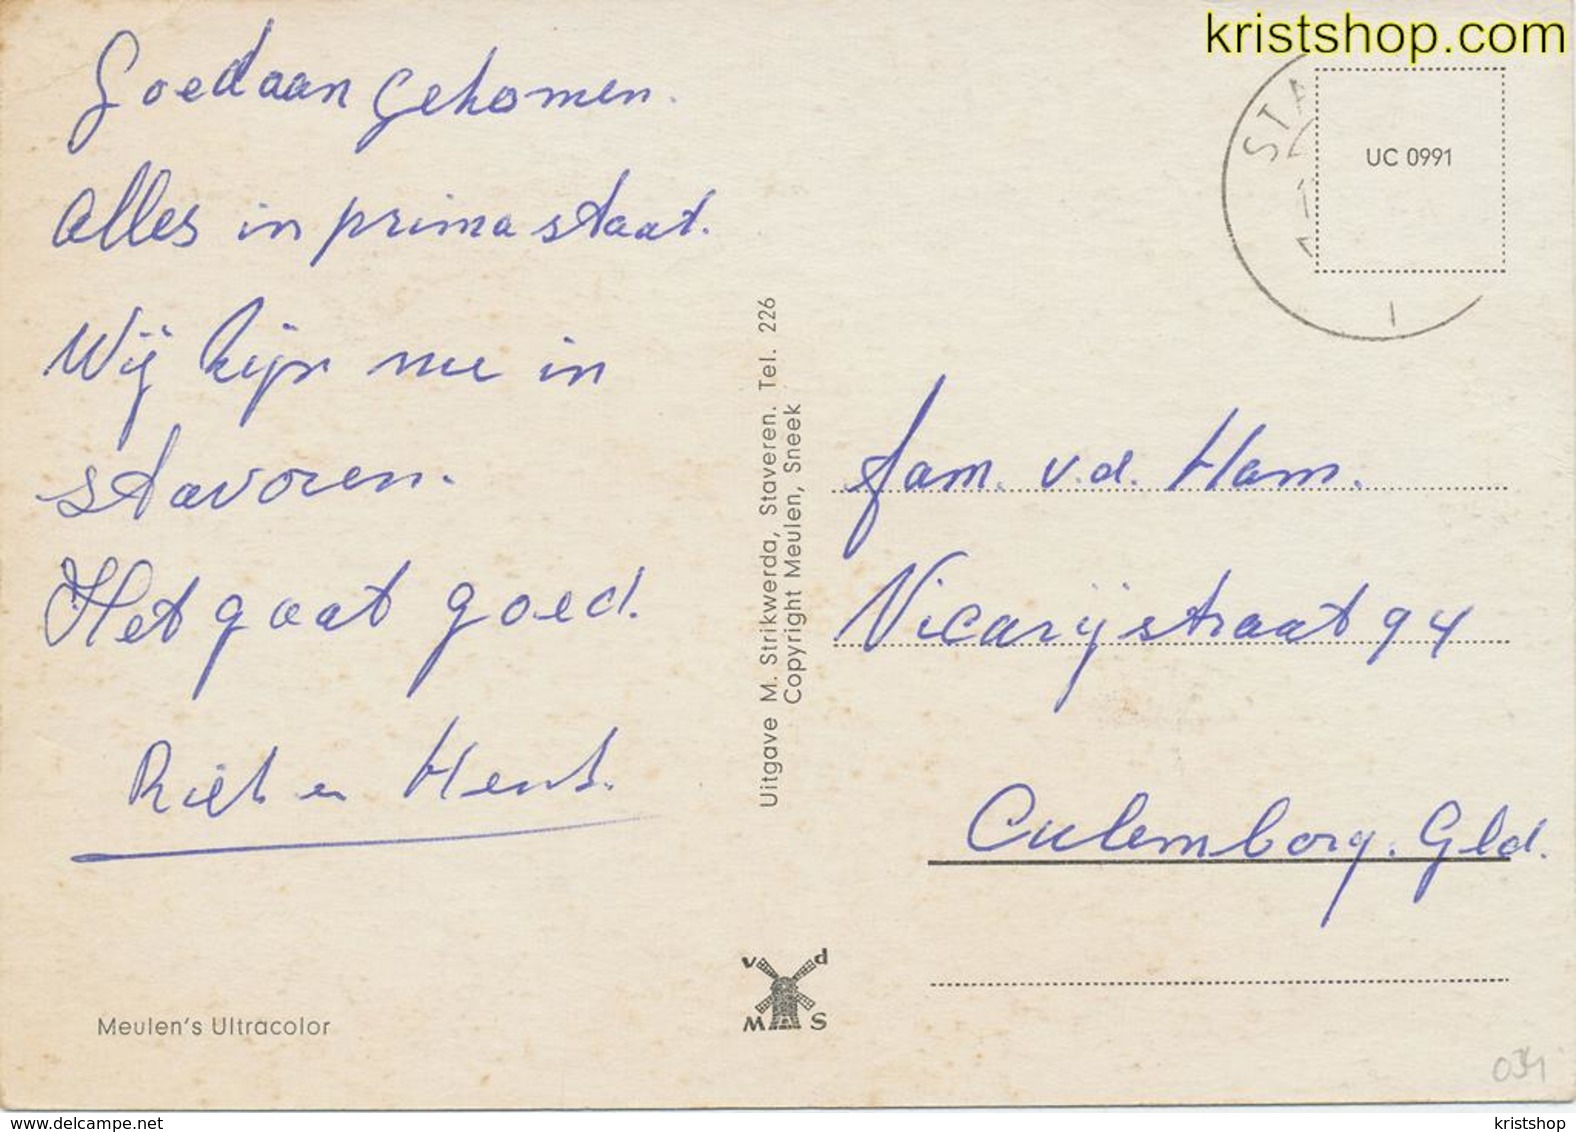 Goed aan gekomen.
Alles in prima staat.
Wij zijn nu in
stavoren.
Het gaat goed.
Riet en Henk.
Meulen's Ultracolor
Uitgave M. Strikwerda, Staveren. Tel. 226
Copyright Meulen, Sneek
v d
M S
kristshop.com
STA
UC 0991
fam. v.d. Ham.
Vicarijstraat 94
Culemborg. Gld.
034
www.delcampe.net
kristshop